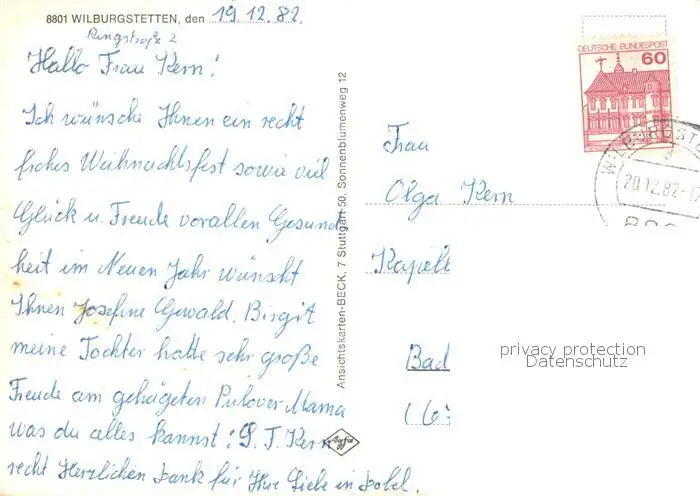 8801 WILBURGSTETTEN, den 19.12.82.
Ringstraße 2
Hallo Frau Kern!
Ich wünsche Ihnen ein recht
frohes Weihnachtsfest sowie viel
Glück u. Freude vorallen Gesund
heit im Neuen Jahr wünscht
Ihnen Josefine Gewald. Birgit
meine Tochter hatte sehr große
Freude am gehägeten Pulover Mama
was du alles kannst! L. F. Kern
recht Herzlichen Dank für Ihre Liebe in
Ansichtskarten-BECK, 7 Stuttgart 50, Sonnenblumenweg 12
Agfa
DEUTSCHE BUNDESPOST
60
WILBURGST
20.12.82-17
880
Frau
Olga Kern
Kapell
Bad
privacy protection
Datenschutz